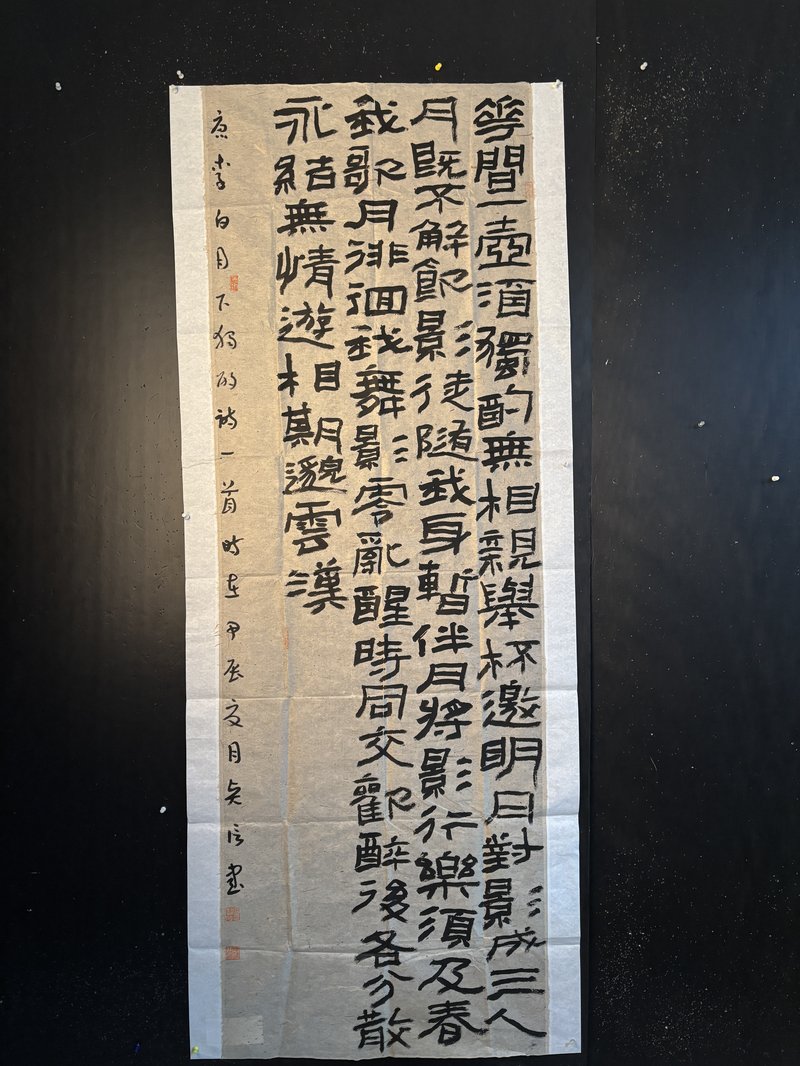 華間一壺酒獨酌無相親舉杯邀明月對影成三人
月既不解飲影徒隨我身暫伴月將影行樂須及春
我歌月徘徊我舞影零亂醒時同交歡醉後各分散
永結無情遊相期邈雲漢
唐李白月下獨酌詩一首時在甲辰夏月信書